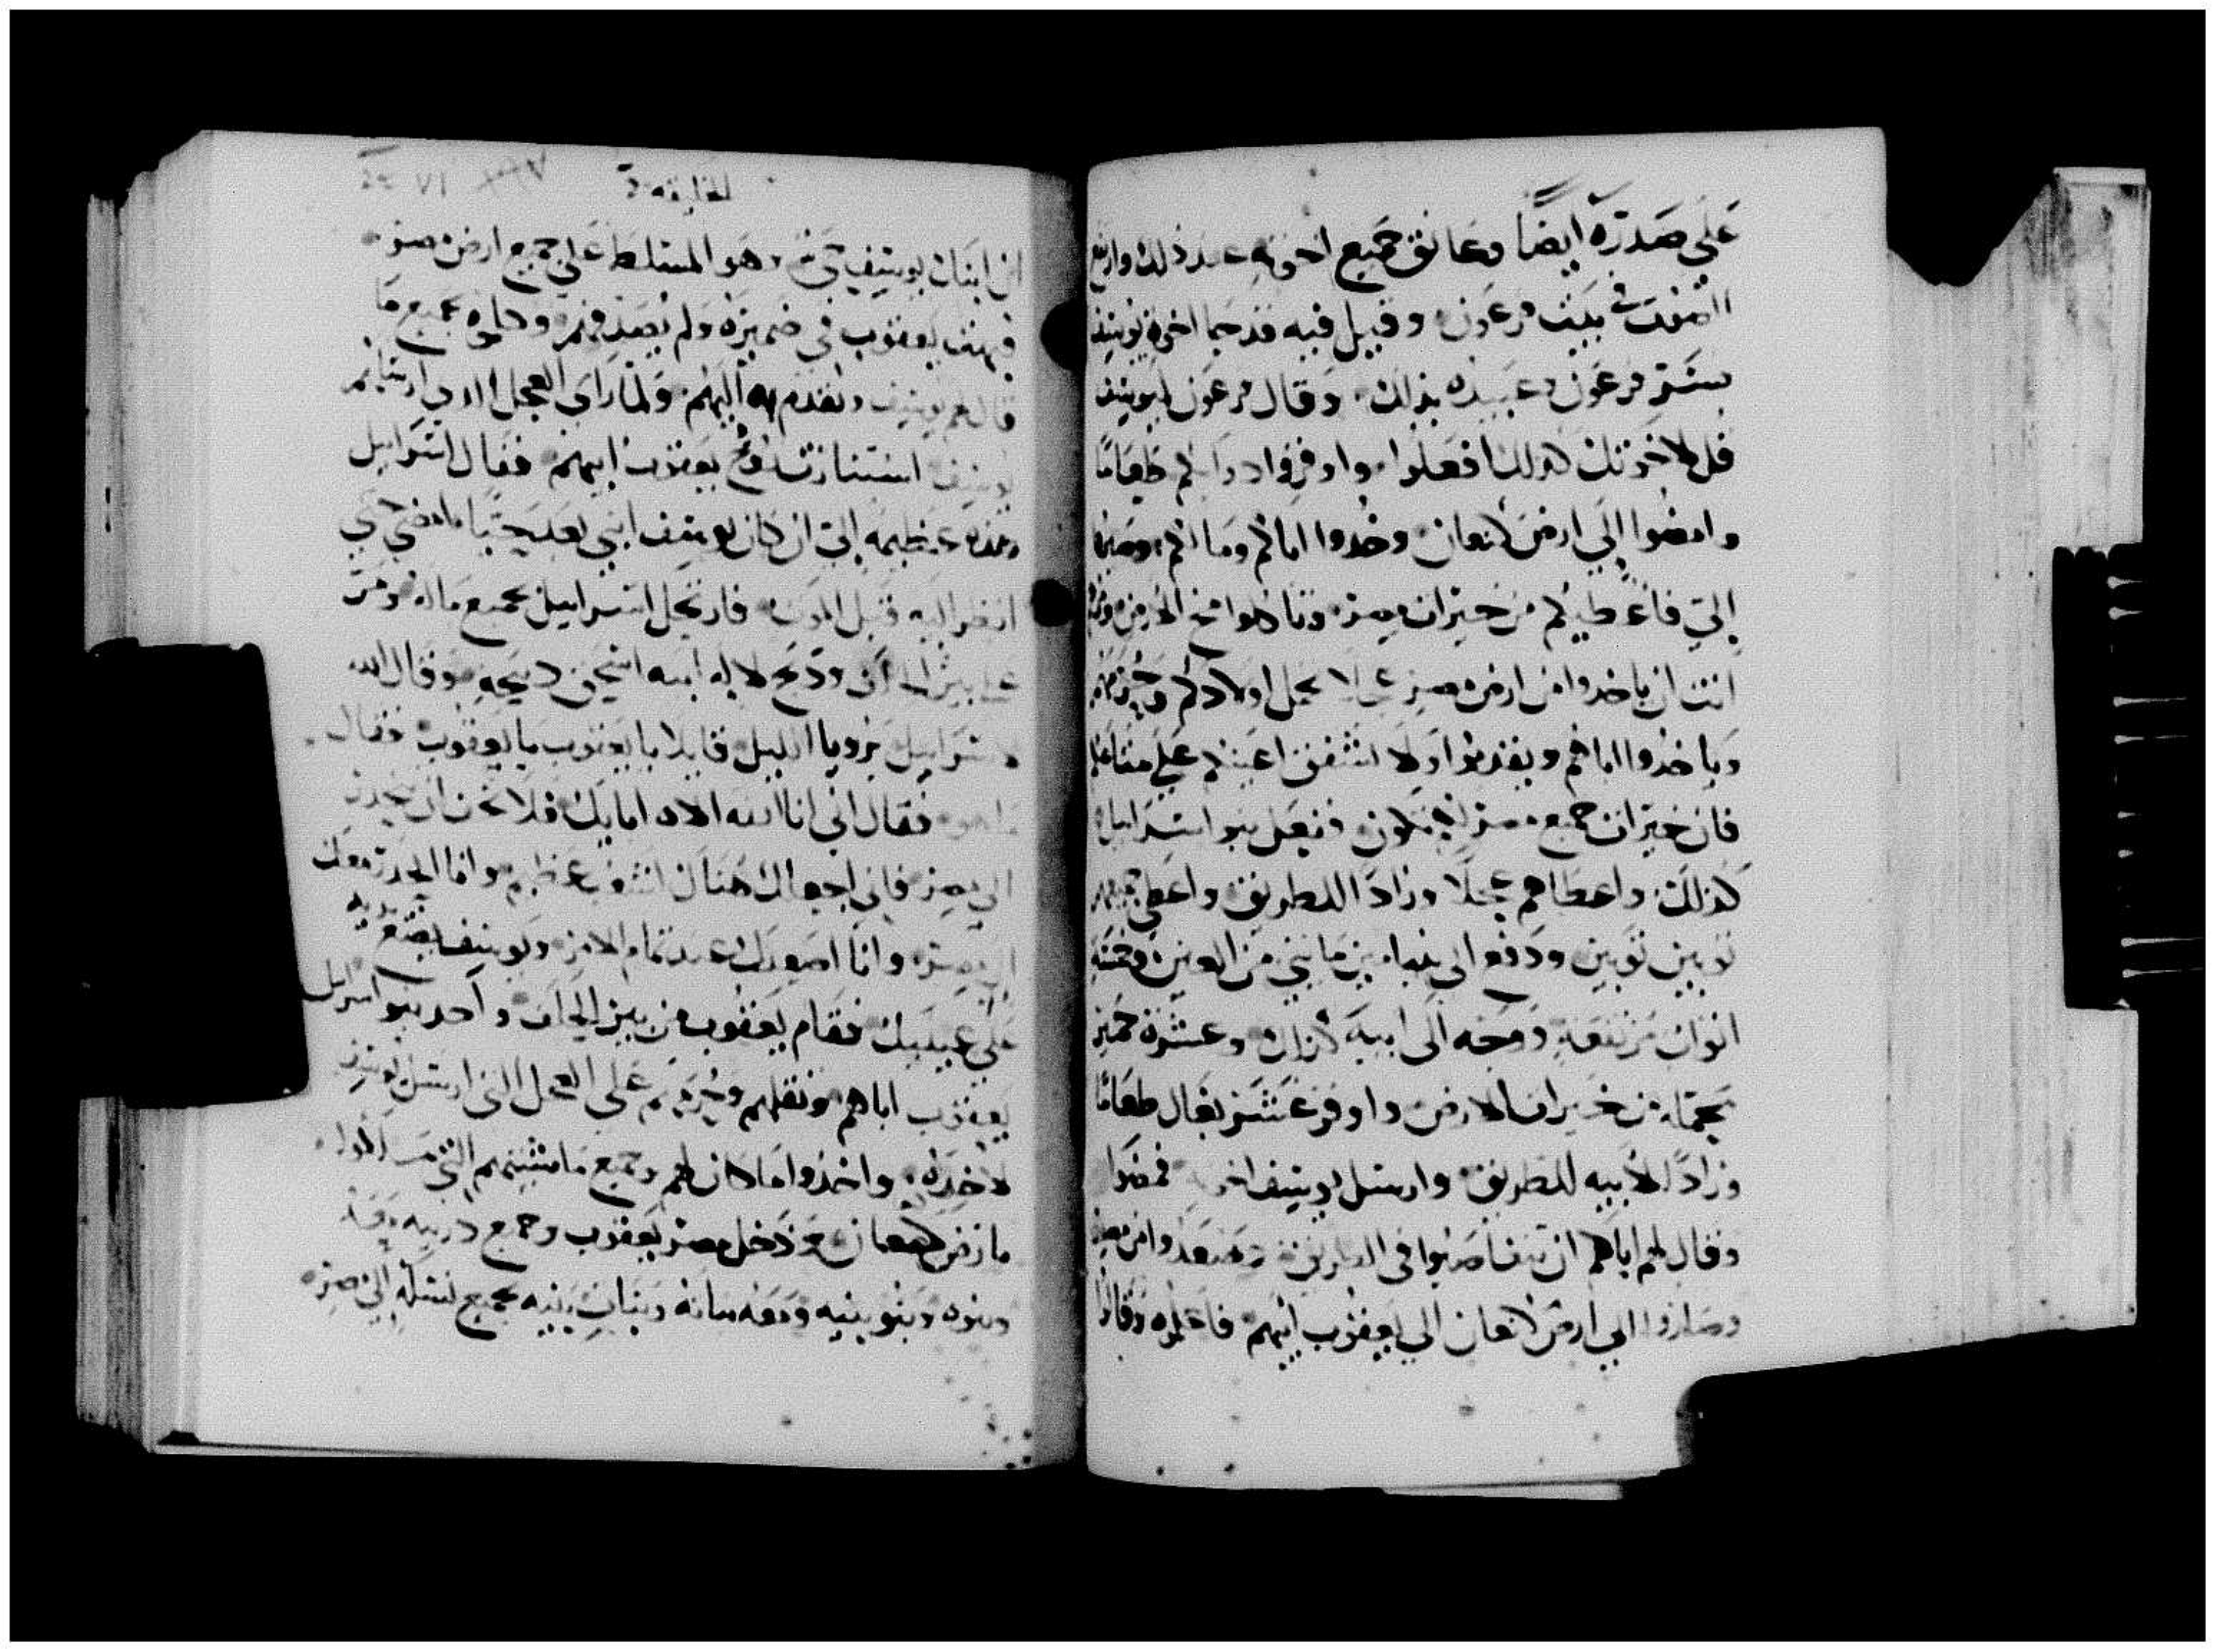 علي صدره ايضا وعانق جميع اخوته عند ذلك وارتفع
الصوت في بيت فرعون وقيل فيه قد جا اخوة يوسف
فسر فرعون وعبيده بذلك وقال فرعون ليوسف
قل لاخوتك كذلك افعلوا واوقروا دوابكم طعاما
وامضوا الي ارض كنعان وخدوا اباكم ومالكم وصيروا
الي فاعطيكم من خيرات مصر وتاكلوا مخ الارض
انت ان ياخدوا من ارض مصر عجلا تحمل اولادكم
وياخدوا اباهم ويقدموا ولا تشفق اعينكم علي متاعكم
فان خيرات جميع مصر لكم تكون ففعل بنو اسراييل
كذلك واعطاهم عجلا وزادا للطريق واعطي جميعهم
ثوبين ثوبين ودفع الي بنيامين مايتي من العين وخمسة
اثواب مرتفعة ووجه الي ابيه كذلك وعشرة حمير
محملة من خيرات الارض واوقر عشر بغال طعاما
وزادا لابيه للطريق وارسل يوسف اخوته فمضوا
وقال لهم اياكم ان تتغاضبوا في الطريق وصعدوا من مصر
وصاروا الي ارض كنعان الي يعقوب ابيهم فاعلموه وقالوا
الخليقة
ان ابنك يوسف حي وهو المتسلط علي جميع ارض مصر
فبهت يعقوب في ضميره ولم يصدقهم وكلموه بجميع ما
قال لهم يوسف وتقدم به اليهم ولما راي العجل الذي ارسلها لهم
يوسف استنارت روح يعقوب ابيهم فقال اسراييل
وهذه عظيمة الي ان كان يوسف ابني بعد حيا امضي حتي
انظر اليه قبل الموت فارتحل اسراييل بجميع ماله ومر
علي بير الحلف ودبح لاله ابيه اسحق دبيحة وقال الله
لاسراييل برويا الليل قايلا يا يعقوب يا يعقوب فقال
ما هو فقال اني انا الله اله اباك فلا تخف ان تنحدر
الي مصر فاني اجعلك هناك لشعب عظيم وانا انحدر معك
الي مصر وانا اصعدك عند تمام الامر ويوسف يضع يديه
علي عينيك فقام يعقوب من بير الحلف واخد بنو اسراييل
يعقوب اباهم وثقلهم وحريمهم علي العجل التي ارسل يوسف
لاخده واخدوا ما كان لهم وجميع مامشيتهم التي
بارض كنعان ودخل مصر يعقوب وجميع دريته معه
وبنوه وبنو بنيه ومعه بناته وبنات بنيه بجميع نسله الي مصر